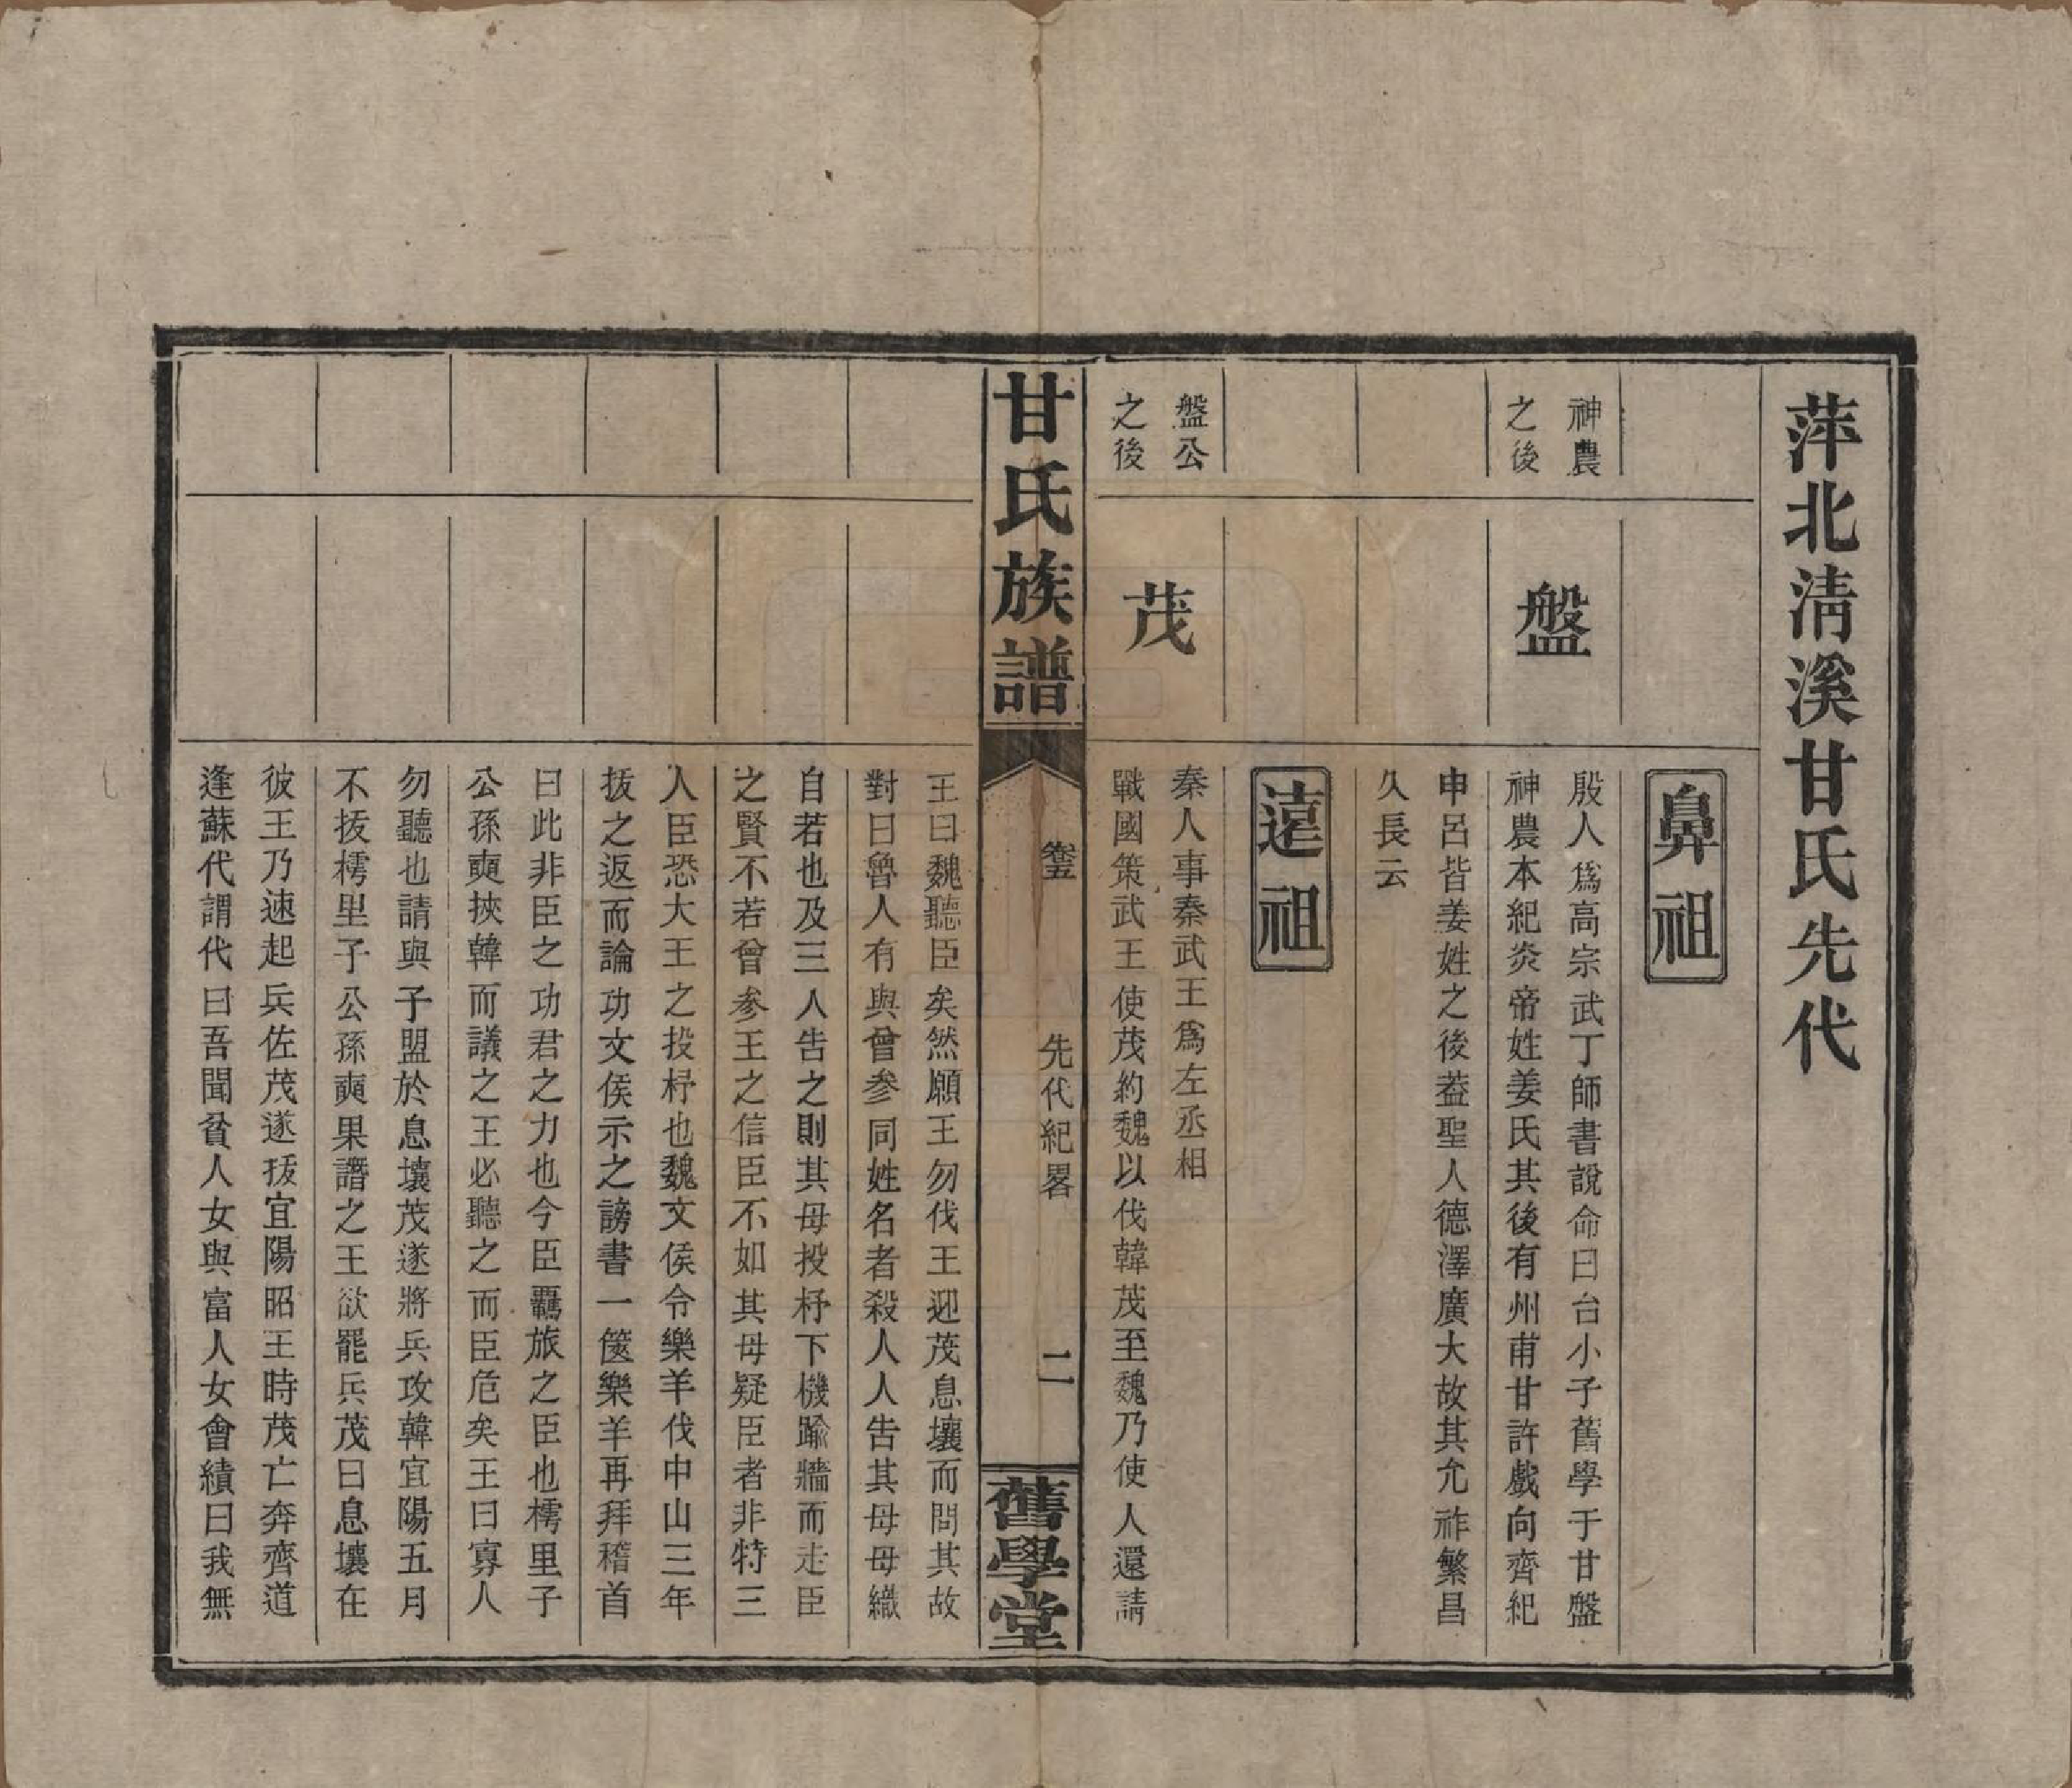 萍北清溪甘氏先代
鼻祖
神農
之後
盤
殷人爲高宗武丁師書說命曰台小子舊學于甘盤
神農本紀炎帝姓姜氏其後有州甫甘許戲向齊紀
申呂皆姜姓之後葢聖人德澤廣大故其允祚繁昌
久長云
遠祖
盤公
之後
茂
秦人事秦武王爲左丞相
戰國策武王使茂約魏以伐韓茂至魏乃使人還請
甘氏族譜
卷五
先代紀畧
二
舊學堂
王曰魏聽臣矣然願王勿伐王迎茂息壤而問其故
對曰魯人有與曾參同姓名者殺人人告其母母織
自若也及三人告之則其母投杼下機踰牆而走臣
之賢不若曾參王之信臣不如其母疑臣者非特三
人臣恐大王之投杼也魏文侯令樂羊伐中山三年
拔之返而論功文侯示之謗書一篋樂羊再拜稽首
曰此非臣之功君之力也今臣羈旅之臣也樗里子
公孫奭挾韓而議之王必聽之而臣危矣王曰寡人
勿聽也請與子盟於息壤茂遂將兵攻韓宜陽五月
不拔樗里子公孫奭果譖之王欲罷兵茂曰息壤在
彼王乃速起兵佐茂遂拔宜陽昭王時茂亡奔齊道
逢蘇代謂代曰吾聞貧人女與富人女會績曰我無